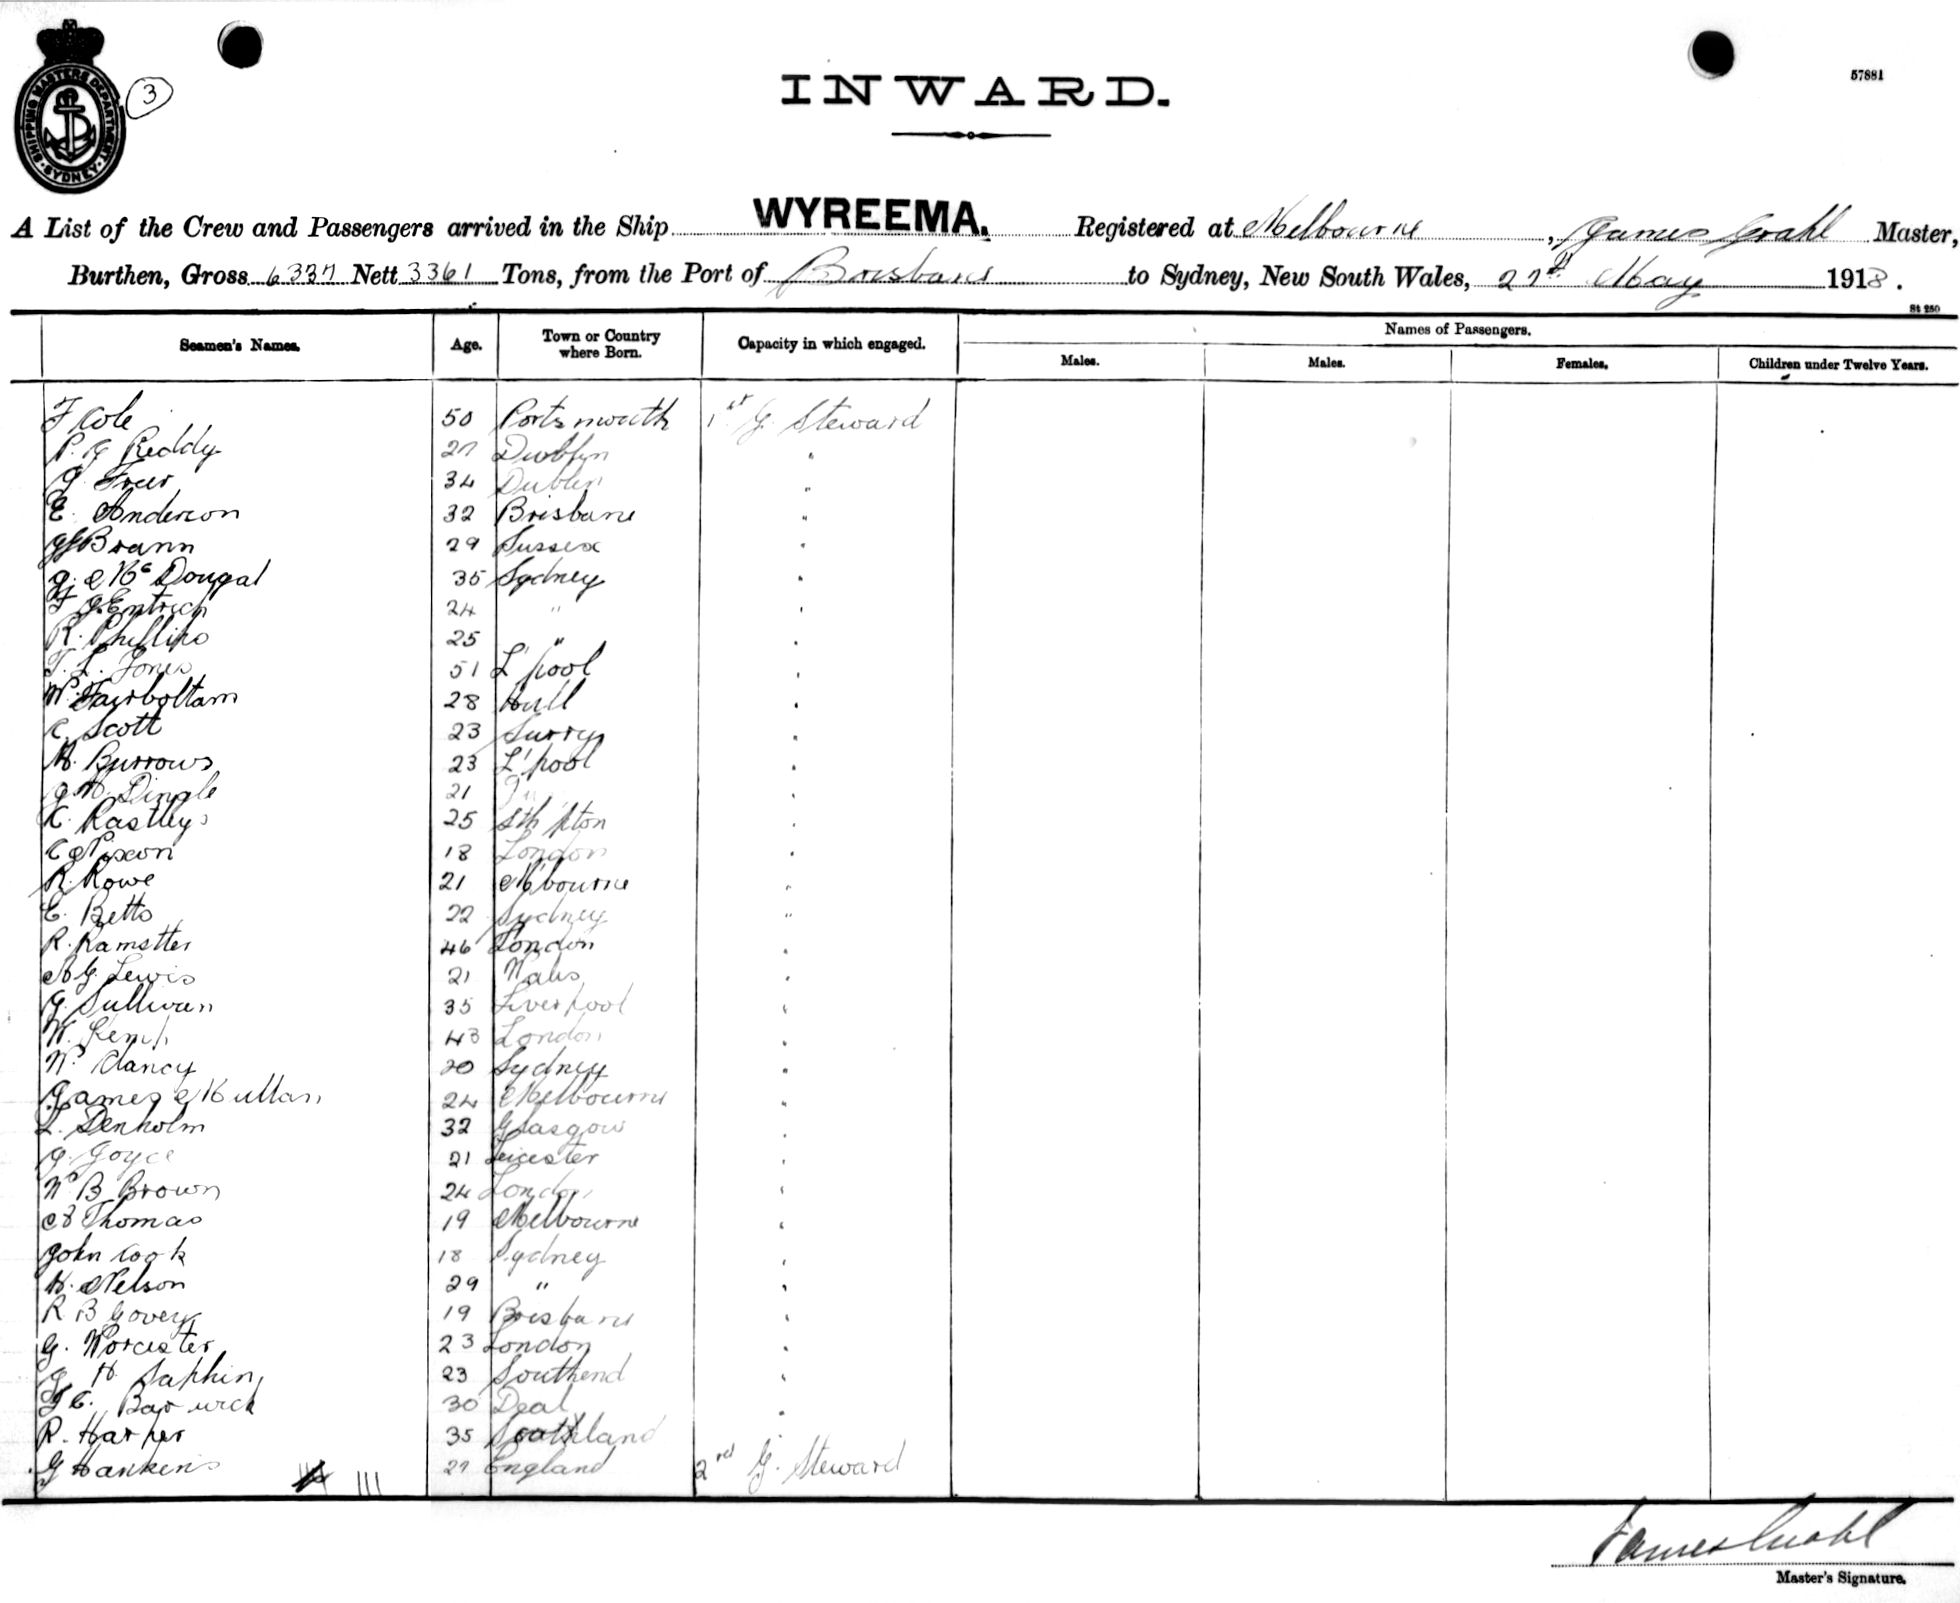 SHIPPING MASTERS DEPARTMENT
SYDNEY
3
57881
INWARD.
A List of the Crew and Passengers arrived in the Ship WYREEMA. Registered at Melbourne, James Grahl Master,
Burthen, Gross 6337 Nett 3361 Tons, from the Port of Brisbane to Sydney, New South Wales, 27th May 1918.
St 250
Seamen's Names. Age. Town or Country where Born. Capacity in which engaged. Names of Passengers.
Males. Males. Females. Children under Twelve Years.
F Cole 50 Portsmouth 1st G. Steward
P. J Reddy 27 Dublin "
J. Freer 34 Dublin "
E. Anderson 32 Brisbane "
Brann 29 Sussex "
J. McDougal 35 Sydney "
24 " "
R. Phillips 25 " "
T. L. Jones 51 L'pool "
W. Fairbottam 28 Hull "
C. Scott 23 Surry "
H. Burrows 23 L'pool "
J. H. Dingle 21 "
R. Rastley 25 Sth'pton "
C Pixon 18 London "
R. Rowe 21 M'bourne "
E. Betts 22 Sydney "
R. Ramstter 46 London "
A G. Lewis 21 Wales "
J. Sullivan 35 Liverpool "
W. Kemp 43 London "
W. Clancy 20 Sydney "
James Mullan 24 Melbourne "
L. Denholm 32 Glasgow "
J. Joyce 21 Leicester "
W. B Brown 24 London "
A Thomas 19 Melbourne "
John Cook 18 Sydney "
H. Nelson 29 " "
R B Govey 19 Brisbane "
G. Worcester 23 London "
J H Saphin 23 Southend "
Barwick 30 Deal "
R. Harper 35 Scotland "
G Hankens 27 England 2nd G. Steward
James Grahl
Master's Signature.